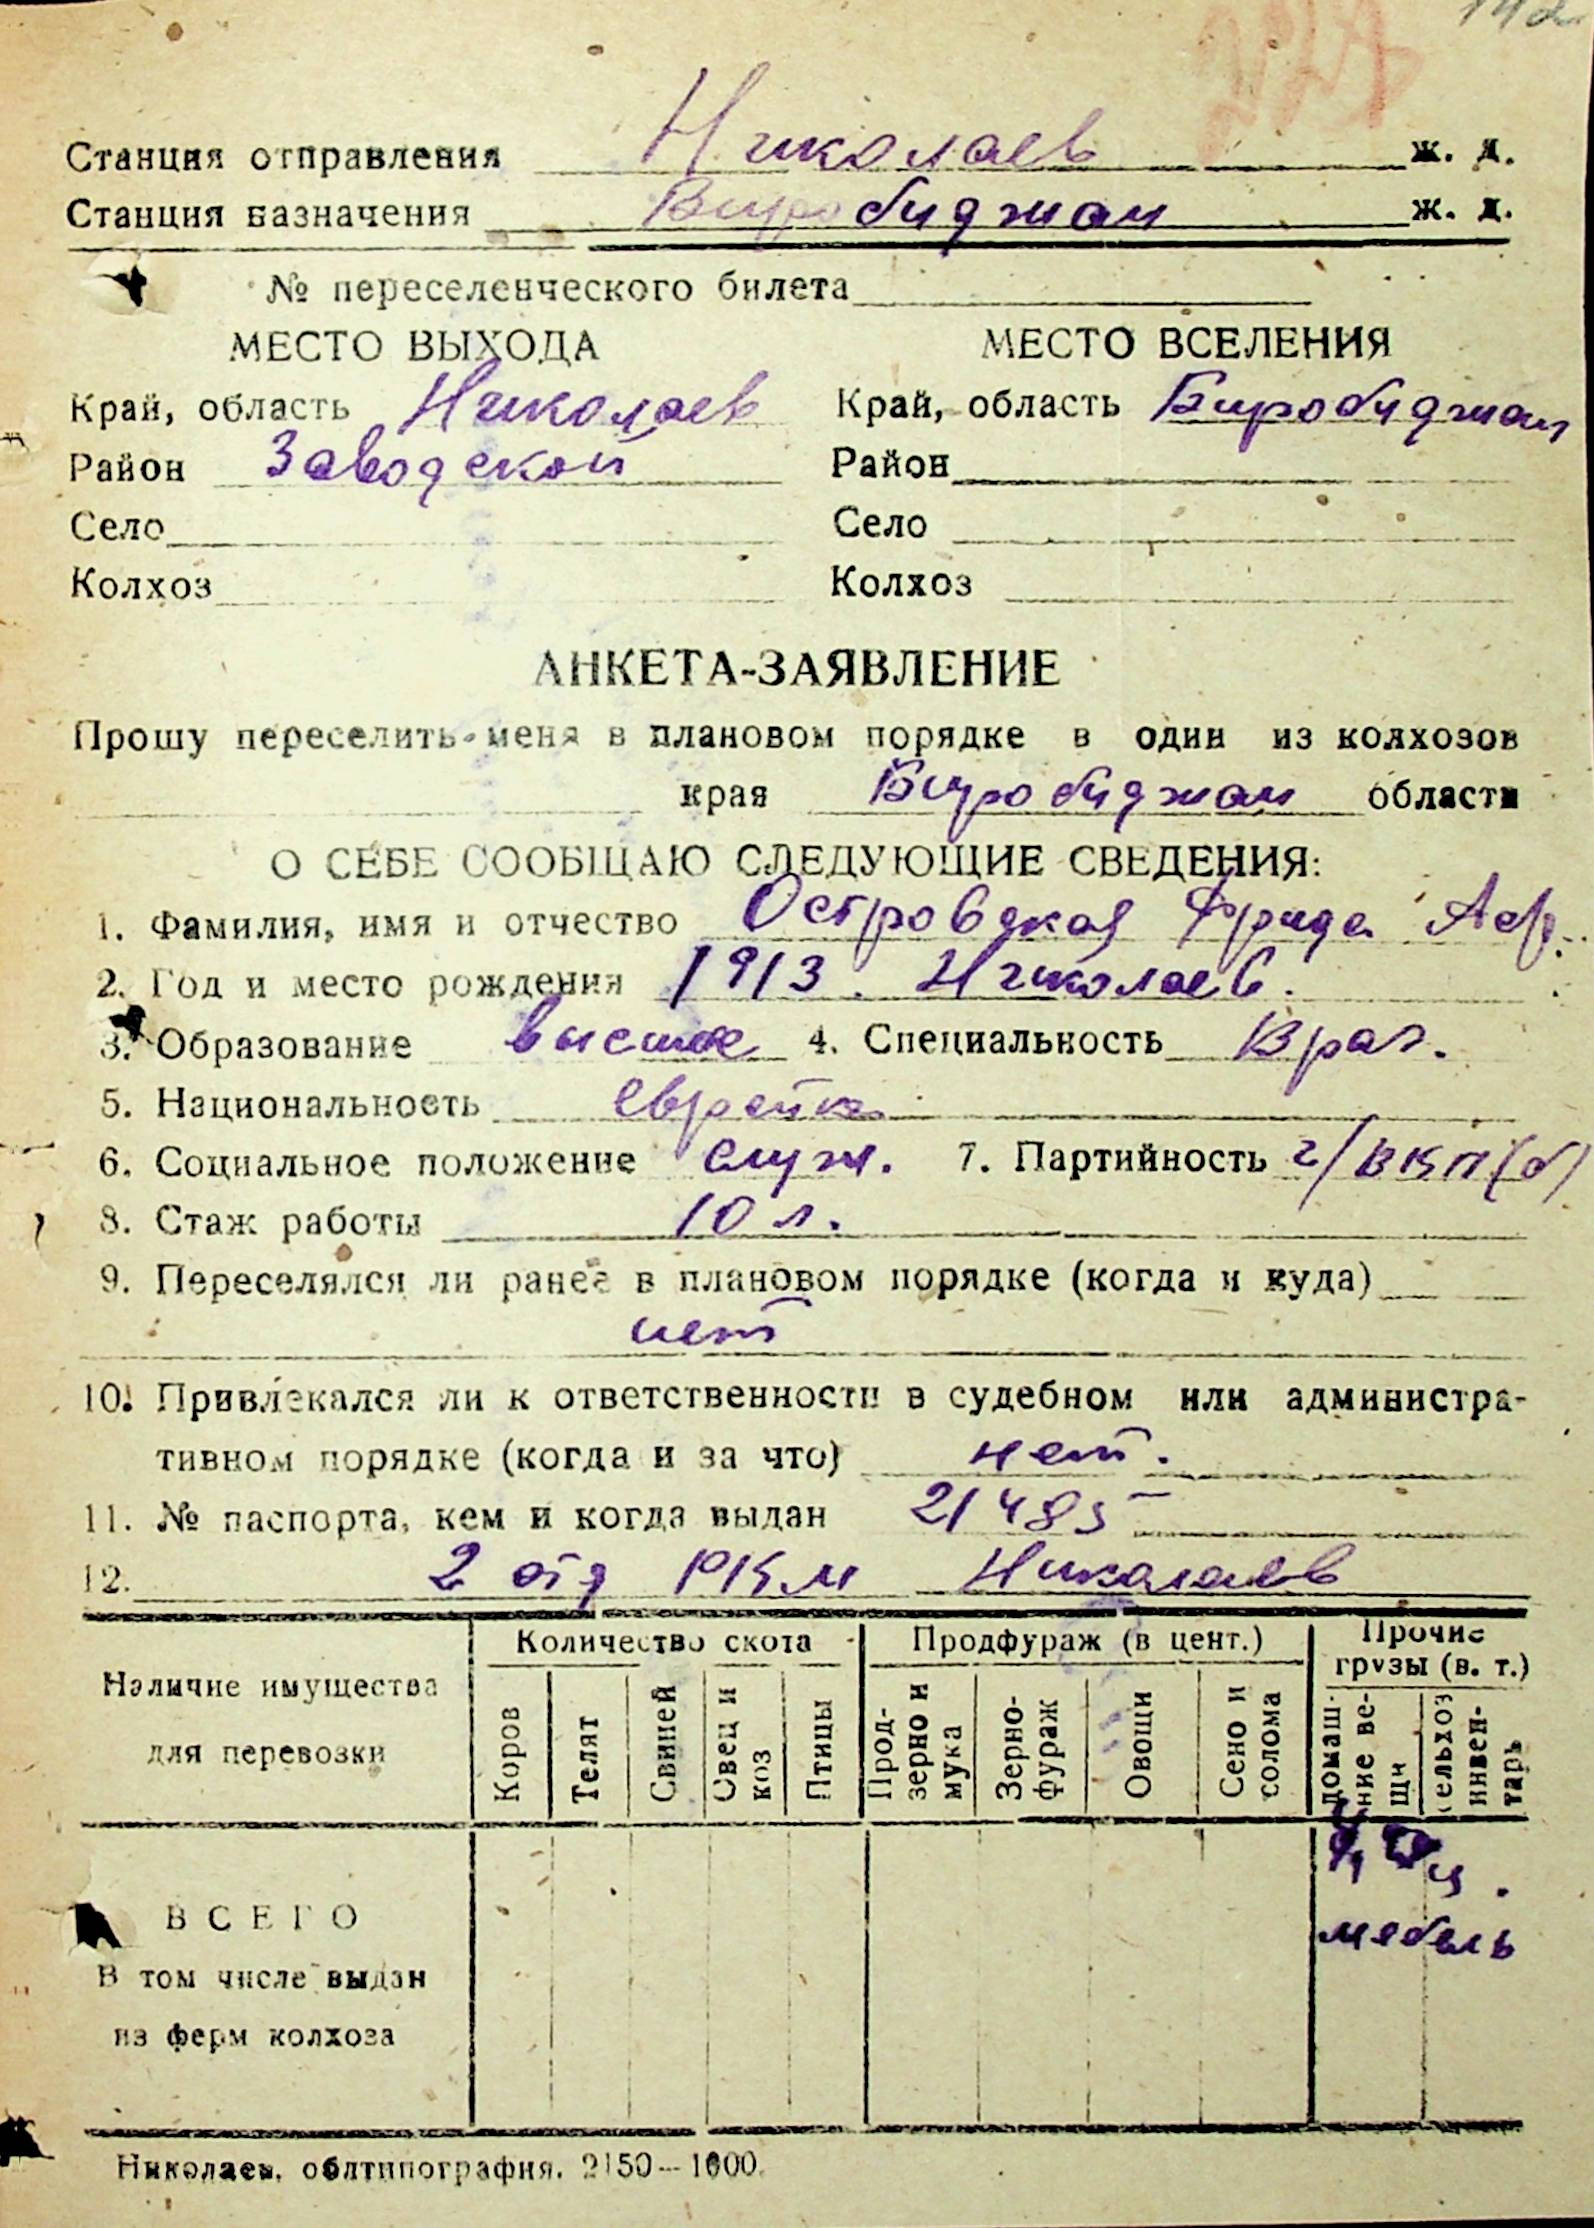 Станция отправления Николаев ж. д.
Станция назначения Биробиджан ж. д.
№ переселенческого билета
МЕСТО ВЫХОДА МЕСТО ВСЕЛЕНИЯ
Край, область Николаев Край, область Биробиджан
Район Заводской Район
Село Село
Колхоз Колхоз
АНКЕТА-ЗАЯВЛЕНИЕ
Прошу переселить меня в плановом порядке в один из колхозов
края Биробиджан области
О СЕБЕ СООБЩАЮ СЛЕДУЮЩИЕ СВЕДЕНИЯ:
1. Фамилия, имя и отчество Островская Фрида Аф.
2. Год и место рождения 1913. Николаев.
3. Образование высшее 4. Специальность Врач.
5. Национальность еврейка
6. Социальное положение служ. 7. Партийность ч/ВКП(б)
8. Стаж работы 10 л.
9. Переселялся ли ранее в плановом порядке (когда и куда)
нет
10. Привлекался ли к ответственности в судебном или администра-
тивном порядке (когда и за что) нет.
11. № паспорта, кем и когда выдан 21485
12. 2 отд РКМ Николаев
Наличие имущества
для перевозки
Количество скота
Коров
Телят
Свиней
Овец и
коз
Птицы
Продфураж (в цент.)
Прод-
зерно и
мука
Зерно-
фураж
Овощи
Сено и
солома
Прочие
грузы (в. т.)
домаш-
ние ве-
щи
сельхоз
инвен-
тарь
ВСЕГО
мебель
В том числе выдан
из ферм колхоза
Николаев, облтипография. 2150—1600.